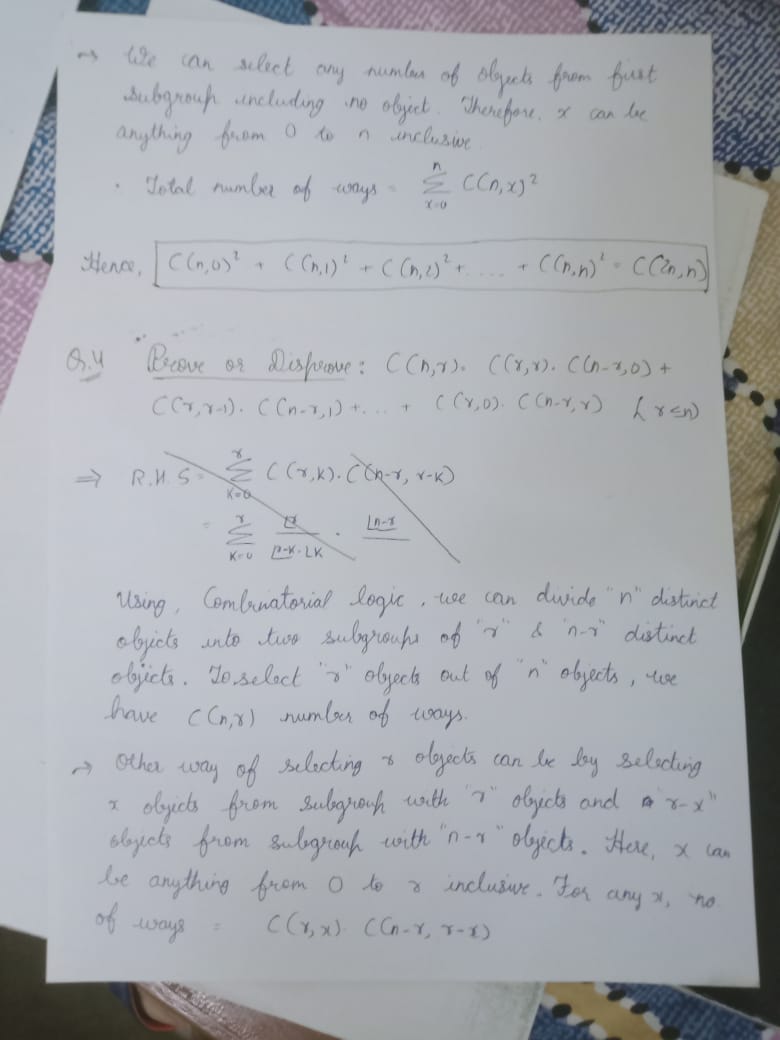 → We can select any number of objects from first
subgroup including no object. Therefore, x can be
anything from 0 to n inclusive.
∴ Total number of ways = n Σ x=0 C(n,x)²
Hence, C(n,0)² + C(n,1)² + C(n,2)² + ..... + C(n,n)² = C(2n,n)
Q.4 Prove or Disprove: C(n,r) = C(r,r). C(n-r,0) +
C(r,r-1). C(n-r,1) + ... + C(r,0). C(n-r,r) (r≤n)
⇒ R.H.S = r Σ K=0 C(r,K). C(n-r, r-K)
= r Σ K=0 ⌊r / ⌊r-K . ⌊K . ⌊n-r
Using, Combinatorial logic, we can divide "n" distinct
objects into two subgroups of "r" & "n-r" distinct
objects. To select "r" objects out of "n" objects, we
have C(n,r) number of ways.
→ Other way of selecting r objects can be by selecting
x objects from subgroup with "r" objects and "r-x"
objects from subgroup with "n-r" objects. Here, x can
be anything from 0 to r inclusive. For any x, no
of ways = C(r,x) C(n-r, r-x)